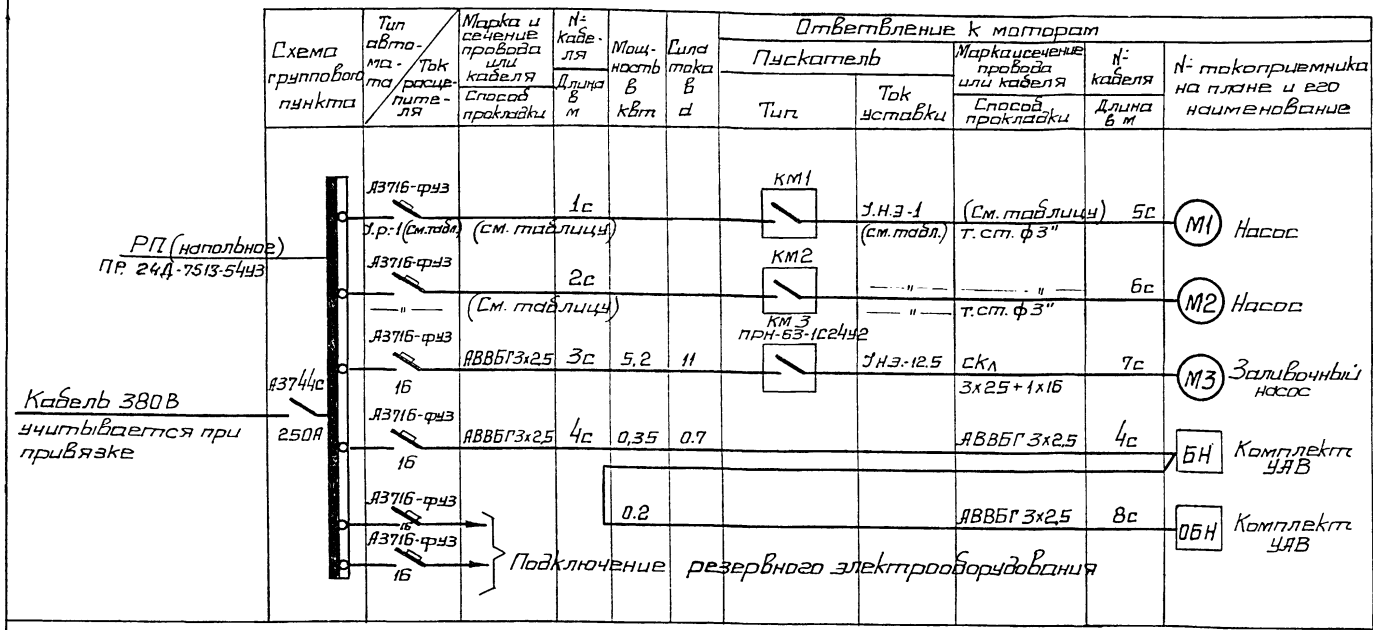 Схема
группового
пункта
Тип
авто-
ма-
та
Ток
расце-
пите-
ля
Марка и
сечение
провода
или
кабеля
Способ
прокладки
№
кабе-
ля
Длина
в
м
Мощ-
ность
в
кВт
Сила
тока
в
а
Ответвление к моторам
Пускатель
Тип
Ток
уставки
Марка и сечение
провода
или кабеля
Способ
прокладки
№
кабеля
Длина
в м
№ токоприемника
на плане и его
наименование
РП (напольное)
ПР. 24Д-7513-54У3
Кабель 380В
учитывается при
привязке
А3744С
250А
А3716-фуз
1с
КМ1
У.Н.Э-1
(См. таблицу)
5с
М1
Насос
У.р.-1 (См.табл.)
(см. таблицу)
(см. табл.)
т. ст. ф 3"
А3716-фуз
2с
КМ2
— " —
— " —
6с
М2
Насос
— " —
(См. таблицу)
— " —
т. ст. ф 3"
КМ 3
ПРН-63-1С24У2
А3716-фуз
АВВБГ 3х2,5
3с
5,2
11
У.Н.Э.-12.5
СКЛ
7с
М3
Заливочный
насос
16
3х25 + 1х16
А3716-фуз
АВВБГ 3х2,5
4с
0,35
0.7
АВВБГ 3х2,5
4с
БН
Комплект
УАВ
16
0.2
АВВБГ 3х2,5
8с
ОБН
Комплект
УАВ
А3716-фуз
16
А3716-фуз
16
Подключение резервного электрооборудования